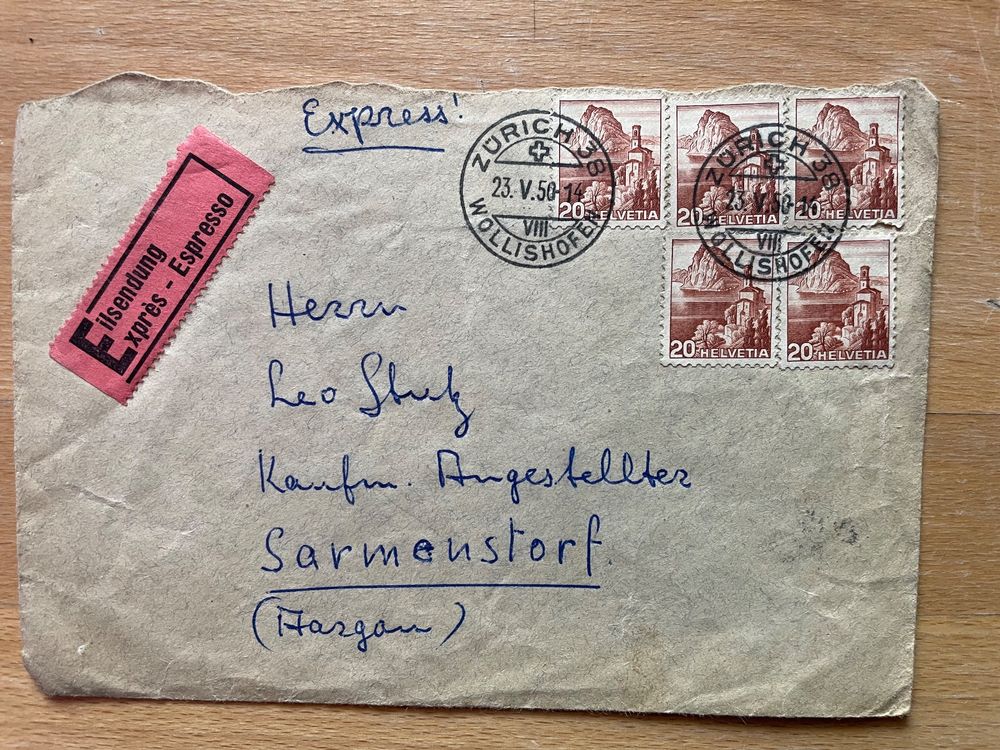 Express!
ZÜRICH 38
23. V. 50-14
VIII
WOLLISHOFEN
ZÜRICH 38
23. V. 50-14
VIII
WOLLISHOFEN
20 HELVETIA
20 HELVETIA
20 HELVETIA
20 HELVETIA
20 HELVETIA
Eilsendung
Exprès - Espresso
Herrn
Leo Stutz
Kaufm. Angestellter
Sarmenstorf.
(Aargau)